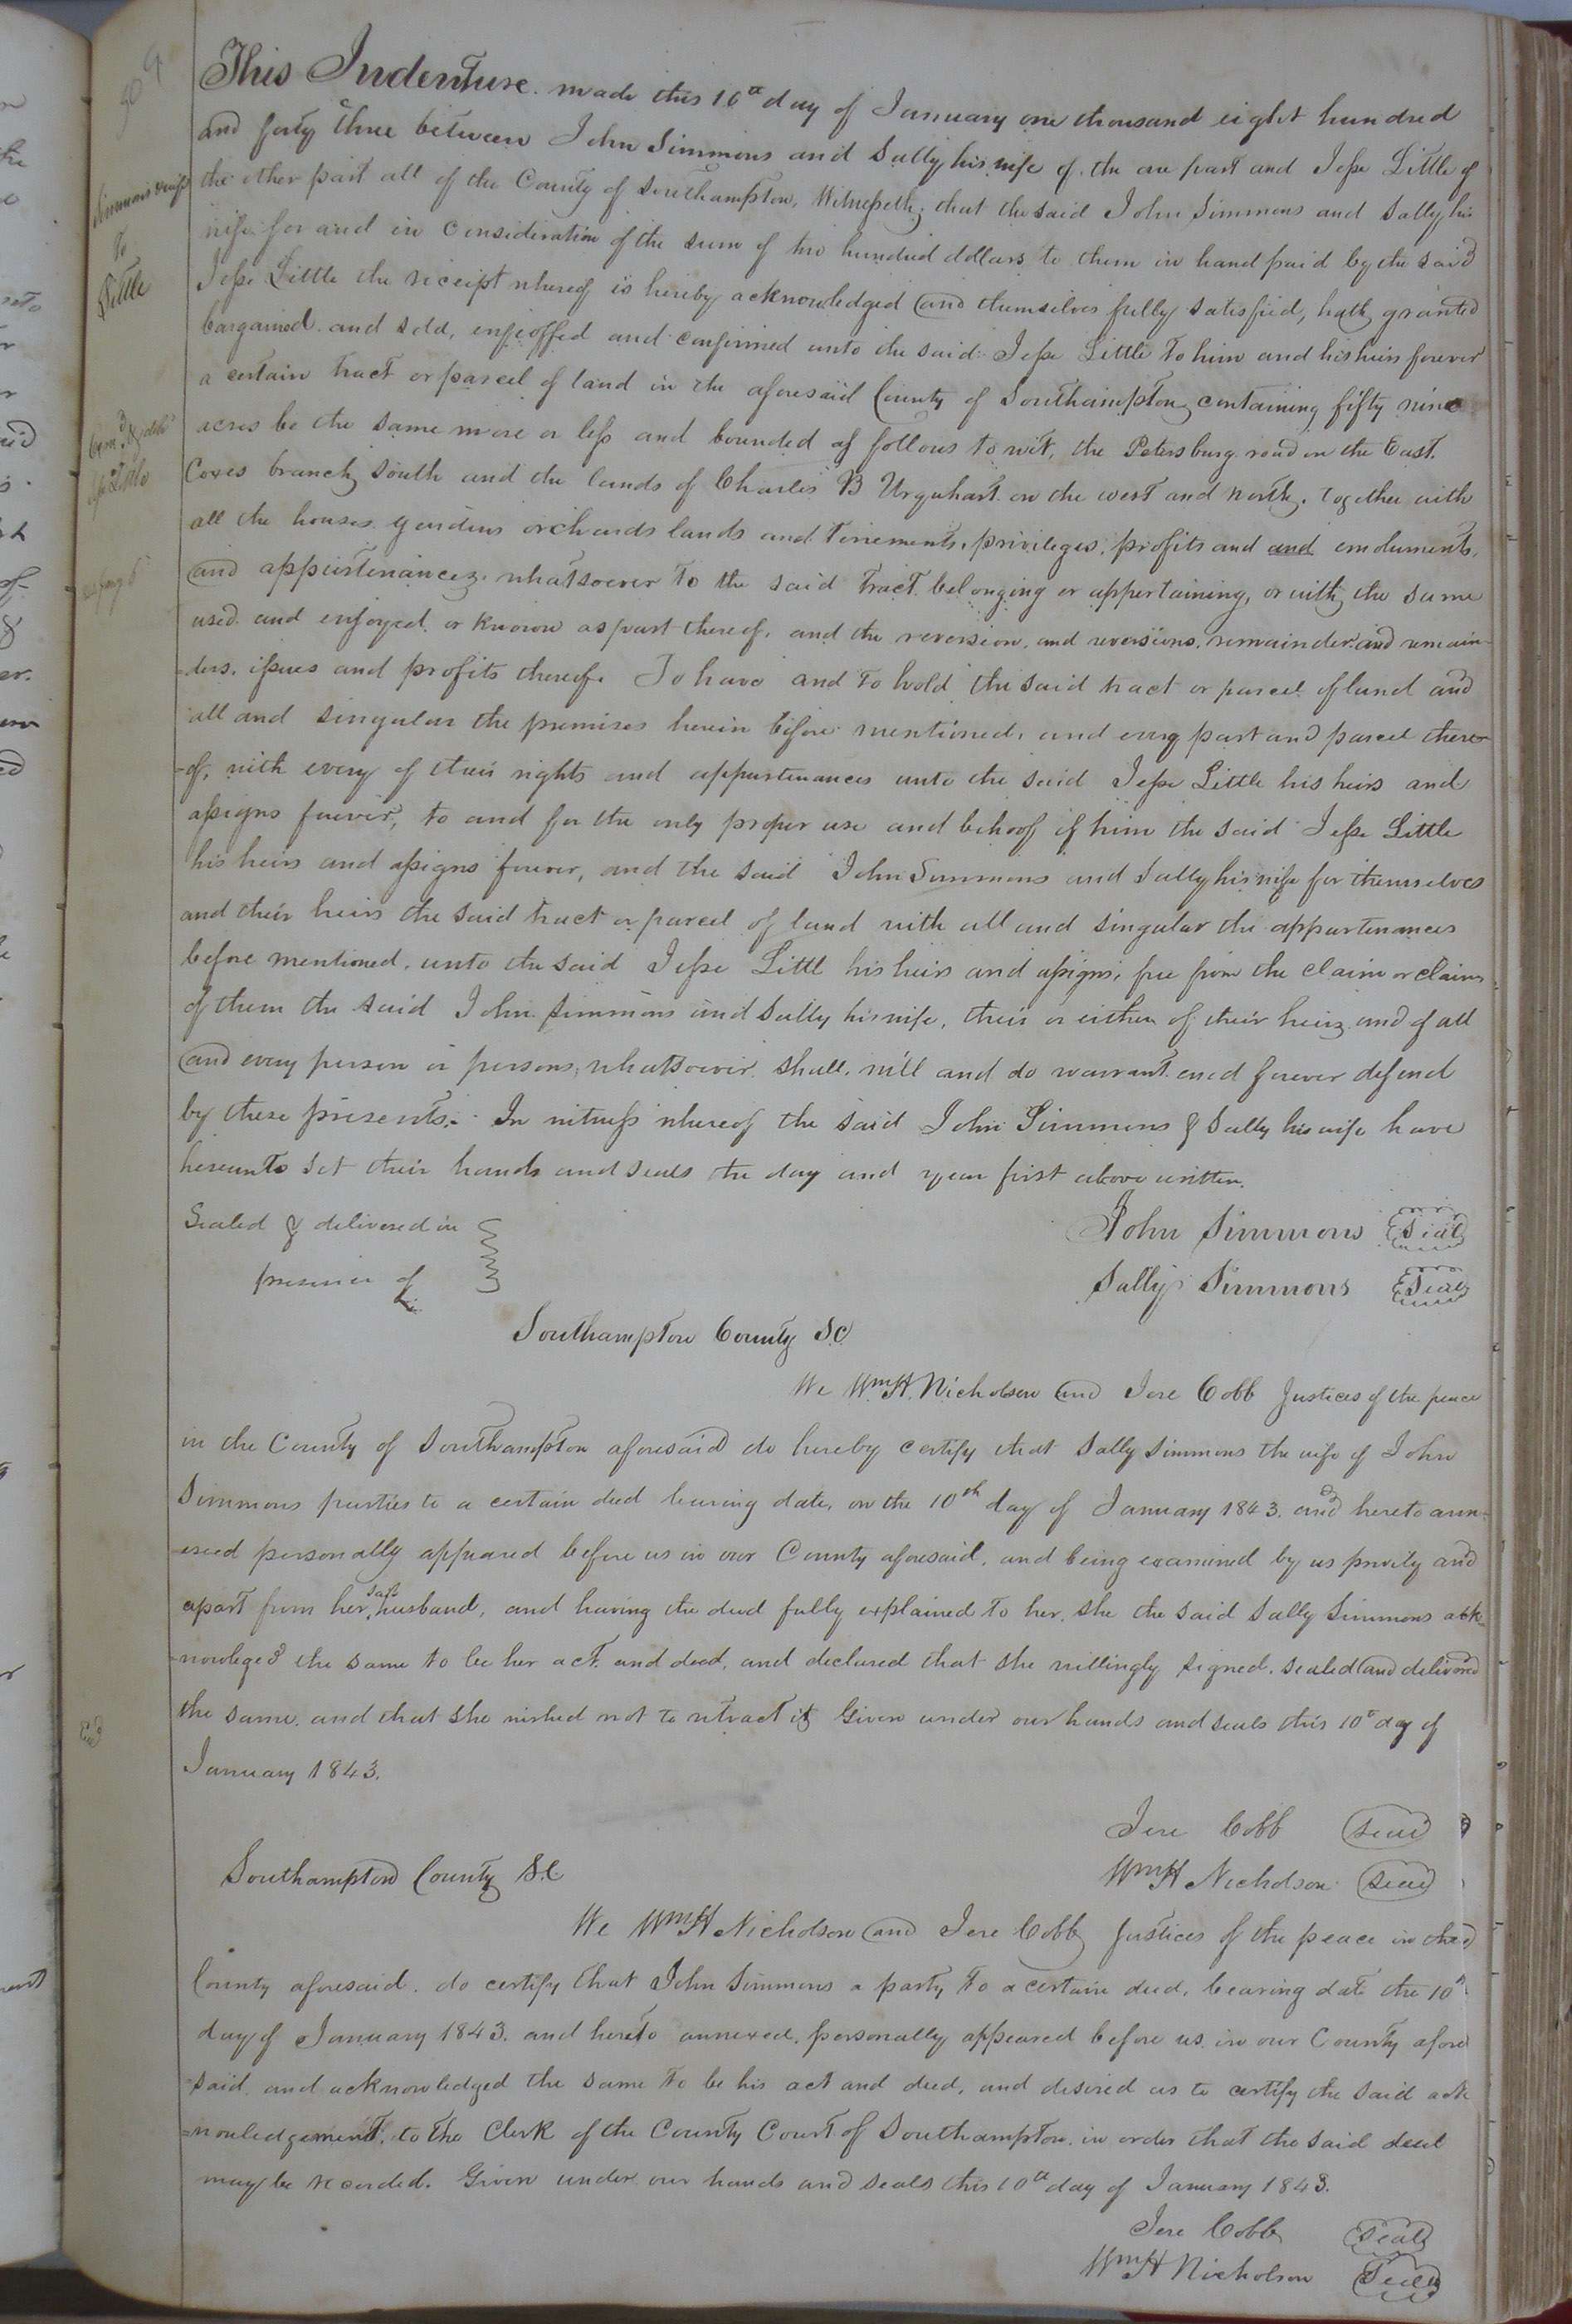 This Indenture made this 10th day of January one thousand eight hundred
and forty three between John Simmons and Sally his wife of the one part and Jesse Little of
the other part all of the County of Southampton, Witnesseth; that the said John Simmons and Sally his
wife for and in Consideration of the sum of two hundred dollars to them in hand paid by the said
Jesse Little the receipt whereof is hereby acknowledged and themselves fully satisfied, hath granted
bargained and sold, enfeoffed and confirmed unto the said Jesse Little to him and his heirs forever
a certain tract or parcel of land in the aforesaid County of Southampton containing fifty nine
acres be the same more or less and bounded as follows to wit, the Petersburg road on the East.
Coxes branch South and the lands of Charles B Urquhart on the west and north. together with
all the houses gardens orchards lands and tenements, privileges, profits and and emoluments,
and appurtenances whatsoever to the said tract belonging or appertaining, or with the same
used and enjoyed or known as part thereof, and the reversion, and reversions, remainder and remain-
-ders, issues and profits thereof. To have and to hold the said tract or parcel of land and
all and singular the premises herein before mentioned, and every part and parcel there-
-of, with every of their rights and appurtenances unto the said Jesse Little his heirs and
assigns forever, to and for the only proper use and behoof of him the said Jesse Little
his heirs and assigns forever, and the said John Simmons and Sally his wife for themselves
and their heirs the said tract or parcel of land with all and singular the appurtenances
before mentioned, unto the said Jesse Littl his heirs and assigns, free from the claim or claims
of them the said John Simmons and Sally his wife, their or either of their heirs and of all
and every person or persons whatsoever shall, will and do warrant and forever defend
by these presents. In witness whereof the said John Simmons & Sally his wife have
hereunto set their hands and seals the day and year first above written.
Sealed & delivered in
presence of
John Simmons Seal
Sally Simmons Seal
Southampton County SC
We Wm H. Nicholson and Jere Cobb Justices of the peace
in the County of Southampton aforesaid do hereby certify that Sally Simmons the wife of John
Simmons parties to a certain deed bearing date, on the 10th day of January 1843. and hereto ann-
-exed personally appeared before us in our County aforesaid, and being examined by us privily and
apart from her said husband, and having the deed fully explained to her, she the said Sally Simmons ack-
-nowleged the same to be her act and deed, and declared that she willingly signed, sealed and delivered
the same, and that she wished not to retract it Given under our hands and seals this 10th day of
January 1843.
Jere Cobb Seal
Wm H Nicholson Seal
Southampton County S.C
We Wm H Nicholson and Jere Cobb Justices of the peace in the
County aforesaid. do certify that John Simmons a party to a certain deed, bearing date the 10th
day of January 1843. and hereto annexed, personally appeared before us in our County afore
said and acknowledged the same to be his act and deed, and desired us to certify the said ack
-nowledgement, to the Clerk of the County Court of Southampton in order that the said deed
may be recorded. Given under our hands and seals this 10th day of January 1843.
Jere Cobb Seal
Wm H Nicholson Seal
Simmons & wife
To
Little
Exd